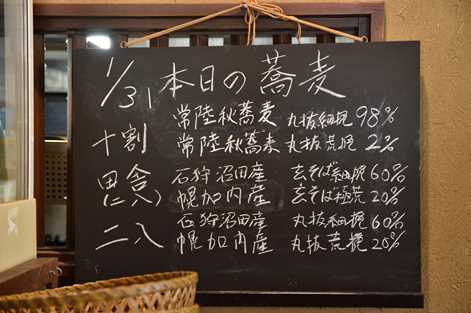 1/31 本日の蕎麦
常陸秋蕎麦 丸抜細挽 98%
十割 常陸秋蕎麦 丸抜荒挽 2%
田舎 石狩沼田産 玄そば細挽 60%
(二八) 幌加内産 玄そば極荒 20%
石狩沼田産 丸抜細挽 60%
二八 幌加内産 丸抜荒挽 20%